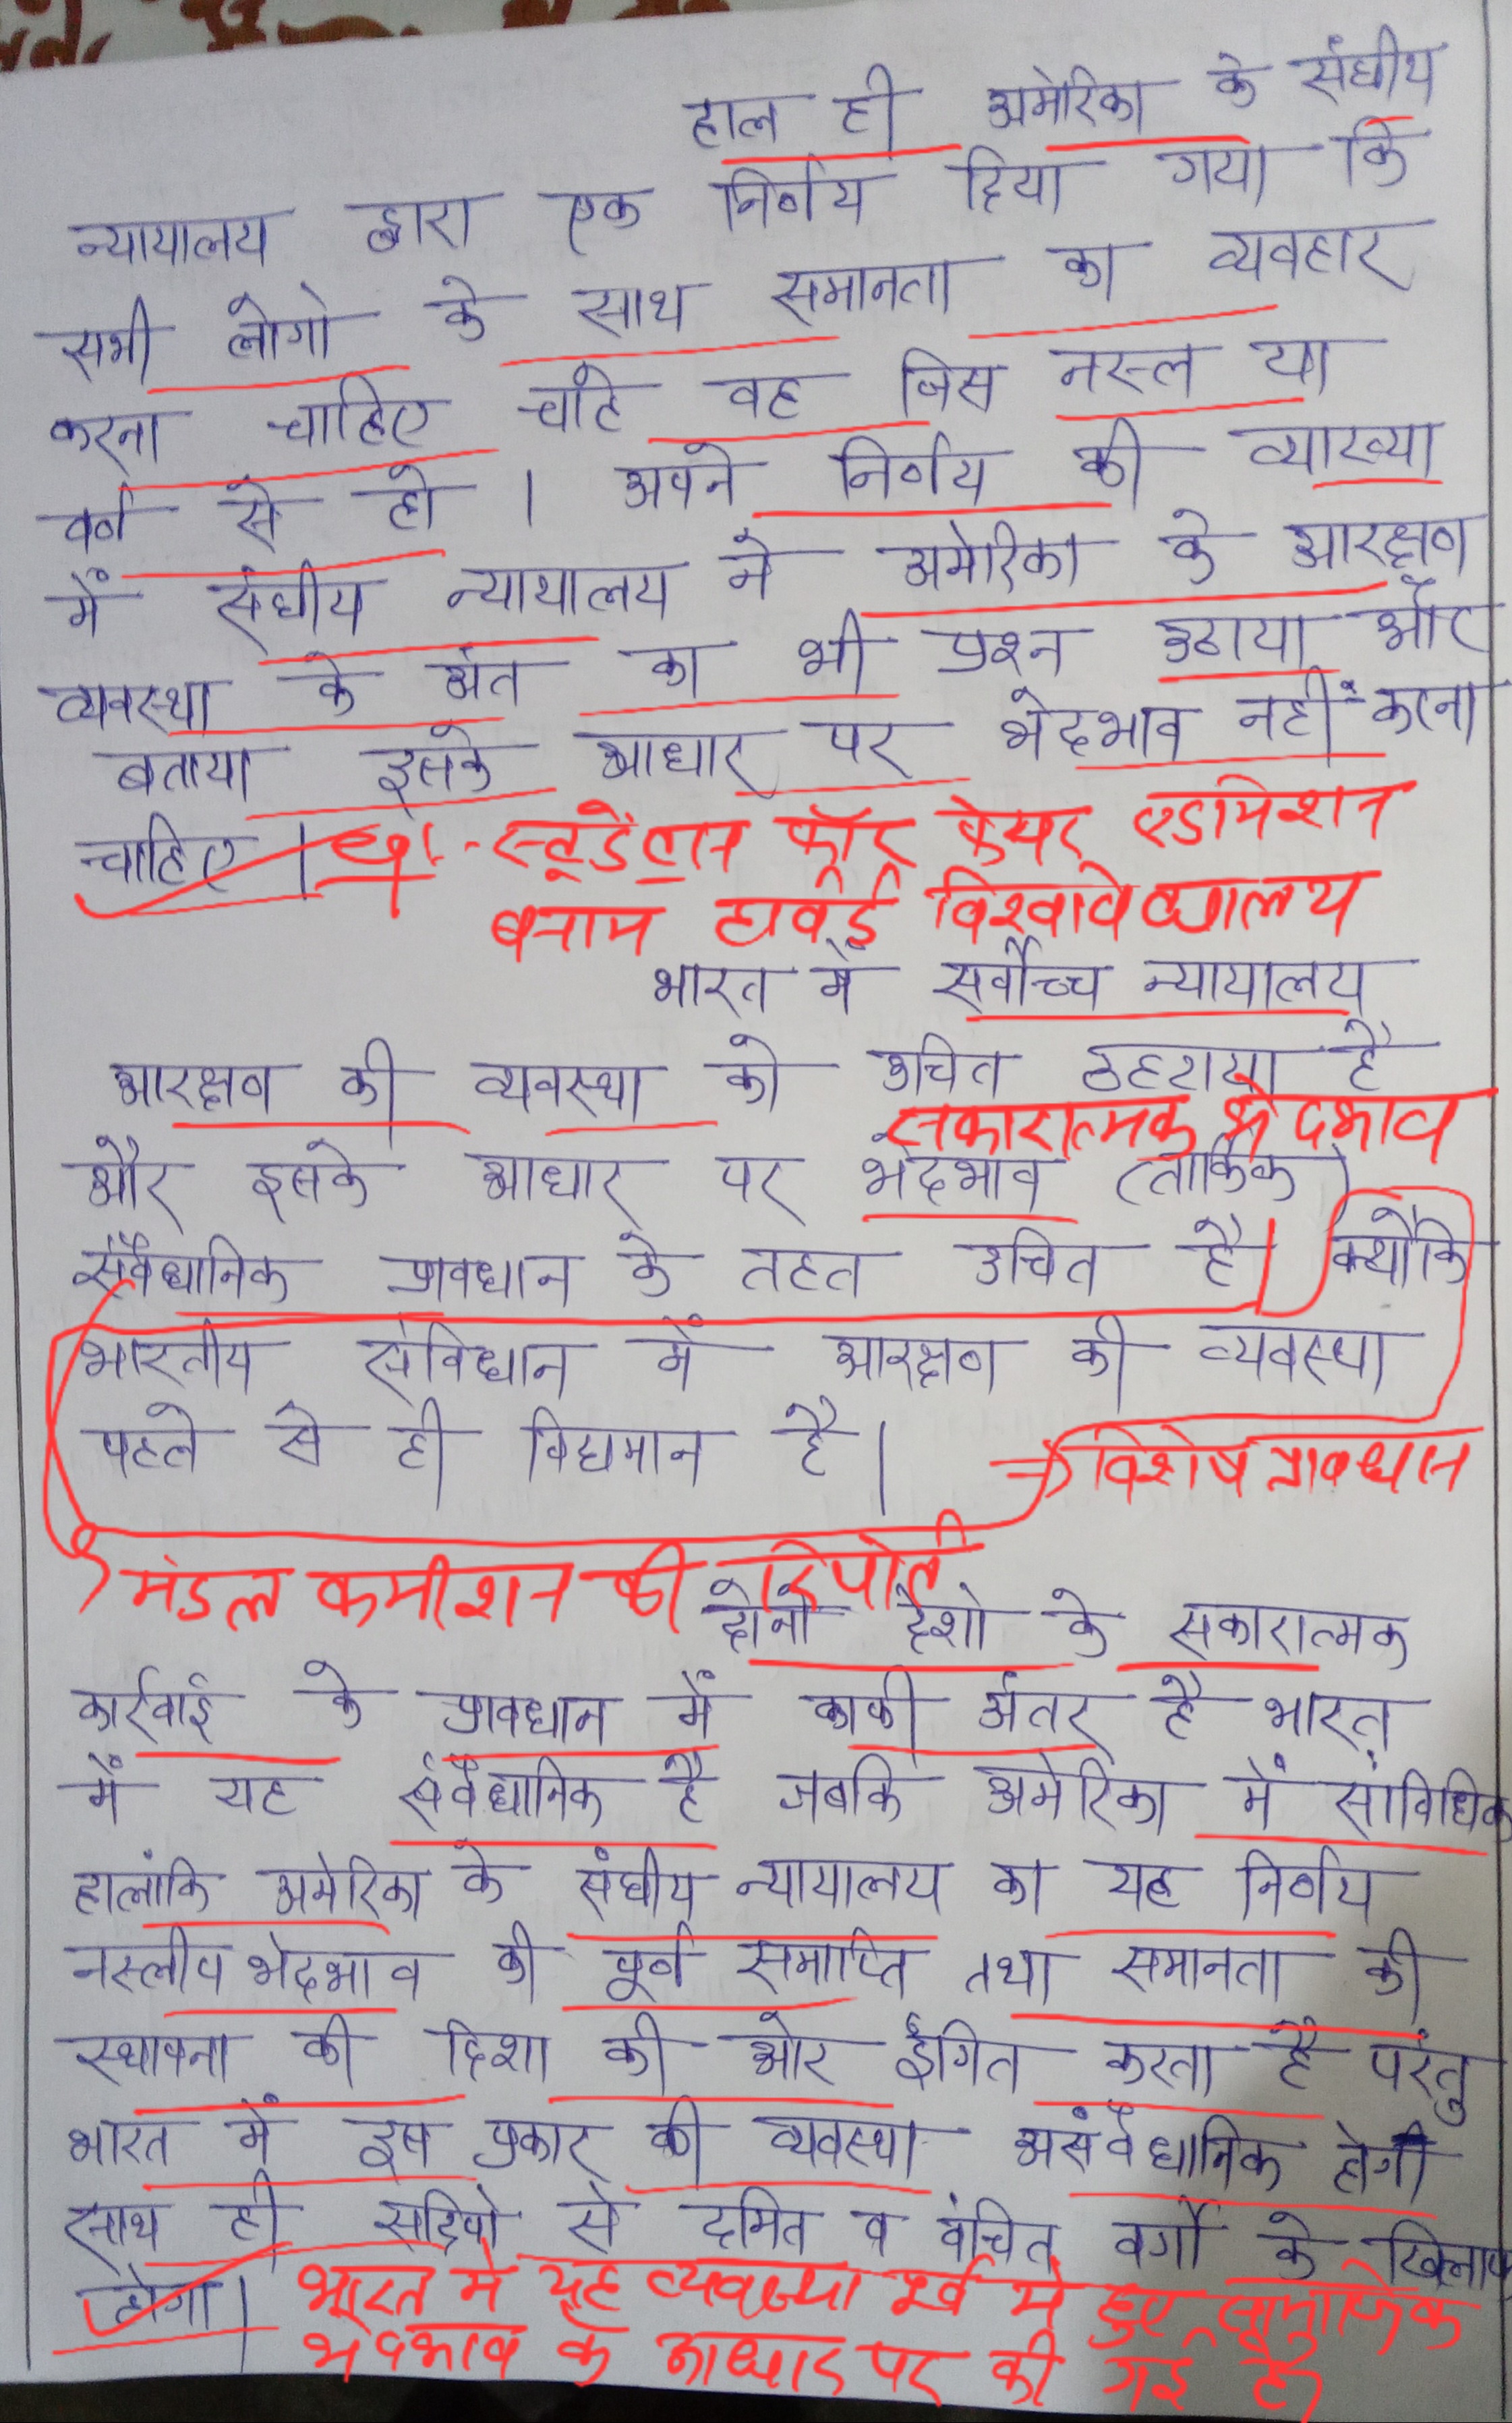 हाल ही अमेरिका के संघीय
न्यायालय द्वारा एक निर्णय दिया गया कि
सभी लोगो के साथ समानता का व्यवहार
करना चाहिए चाहे वह जिस नस्ल या
वर्ण से हो । अपने निर्णय की व्याख्या
में संघीय न्यायालय ने अमेरिका के आरक्षण
व्यवस्था के अंत का भी प्रश्न उठाया और
बताया इसके आधार पर भेदभाव नहीं करना
चाहिए । स्टूडेंटस फॉर फेयर एडमिशन
बनाम हावर्ड विश्वविद्यालय
भारत में सर्वोच्च न्यायालय
आरक्षण की व्यवस्था को उचित ठहराया है
सकारात्मक भेदभाव
और इसके आधार पर भेदभाव (तार्किक)
संवैधानिक प्रावधान के तहत उचित है। क्योंकि
भारतीय संविधान में आरक्षण की व्यवस्था
पहले से ही विद्यमान है ।
विशेष प्रावधान
मंडल कमीशन की रिपोर्ट
दोनो देशो के सकारात्मक
कार्रवाई के प्रावधान में काफी अंतर है भारत
में यह संवैधानिक है जबकि अमेरिका में सांविधिक
हालांकि अमेरिका के संघीय न्यायालय का यह निर्णय
नस्लीय भेदभाव की पूर्ण समाप्ति तथा समानता की
स्थापना की दिशा की ओर इंगित करता है परंतु
भारत में इस प्रकार की व्यवस्था असंवैधानिक होगी
साथ ही सदियो से दमित व वंचित वर्गो के खिलाफ
होगा । भारत में यह व्यवस्था पूर्व में हुए सामाजिक
भेदभाव के आधार पर की गई है।